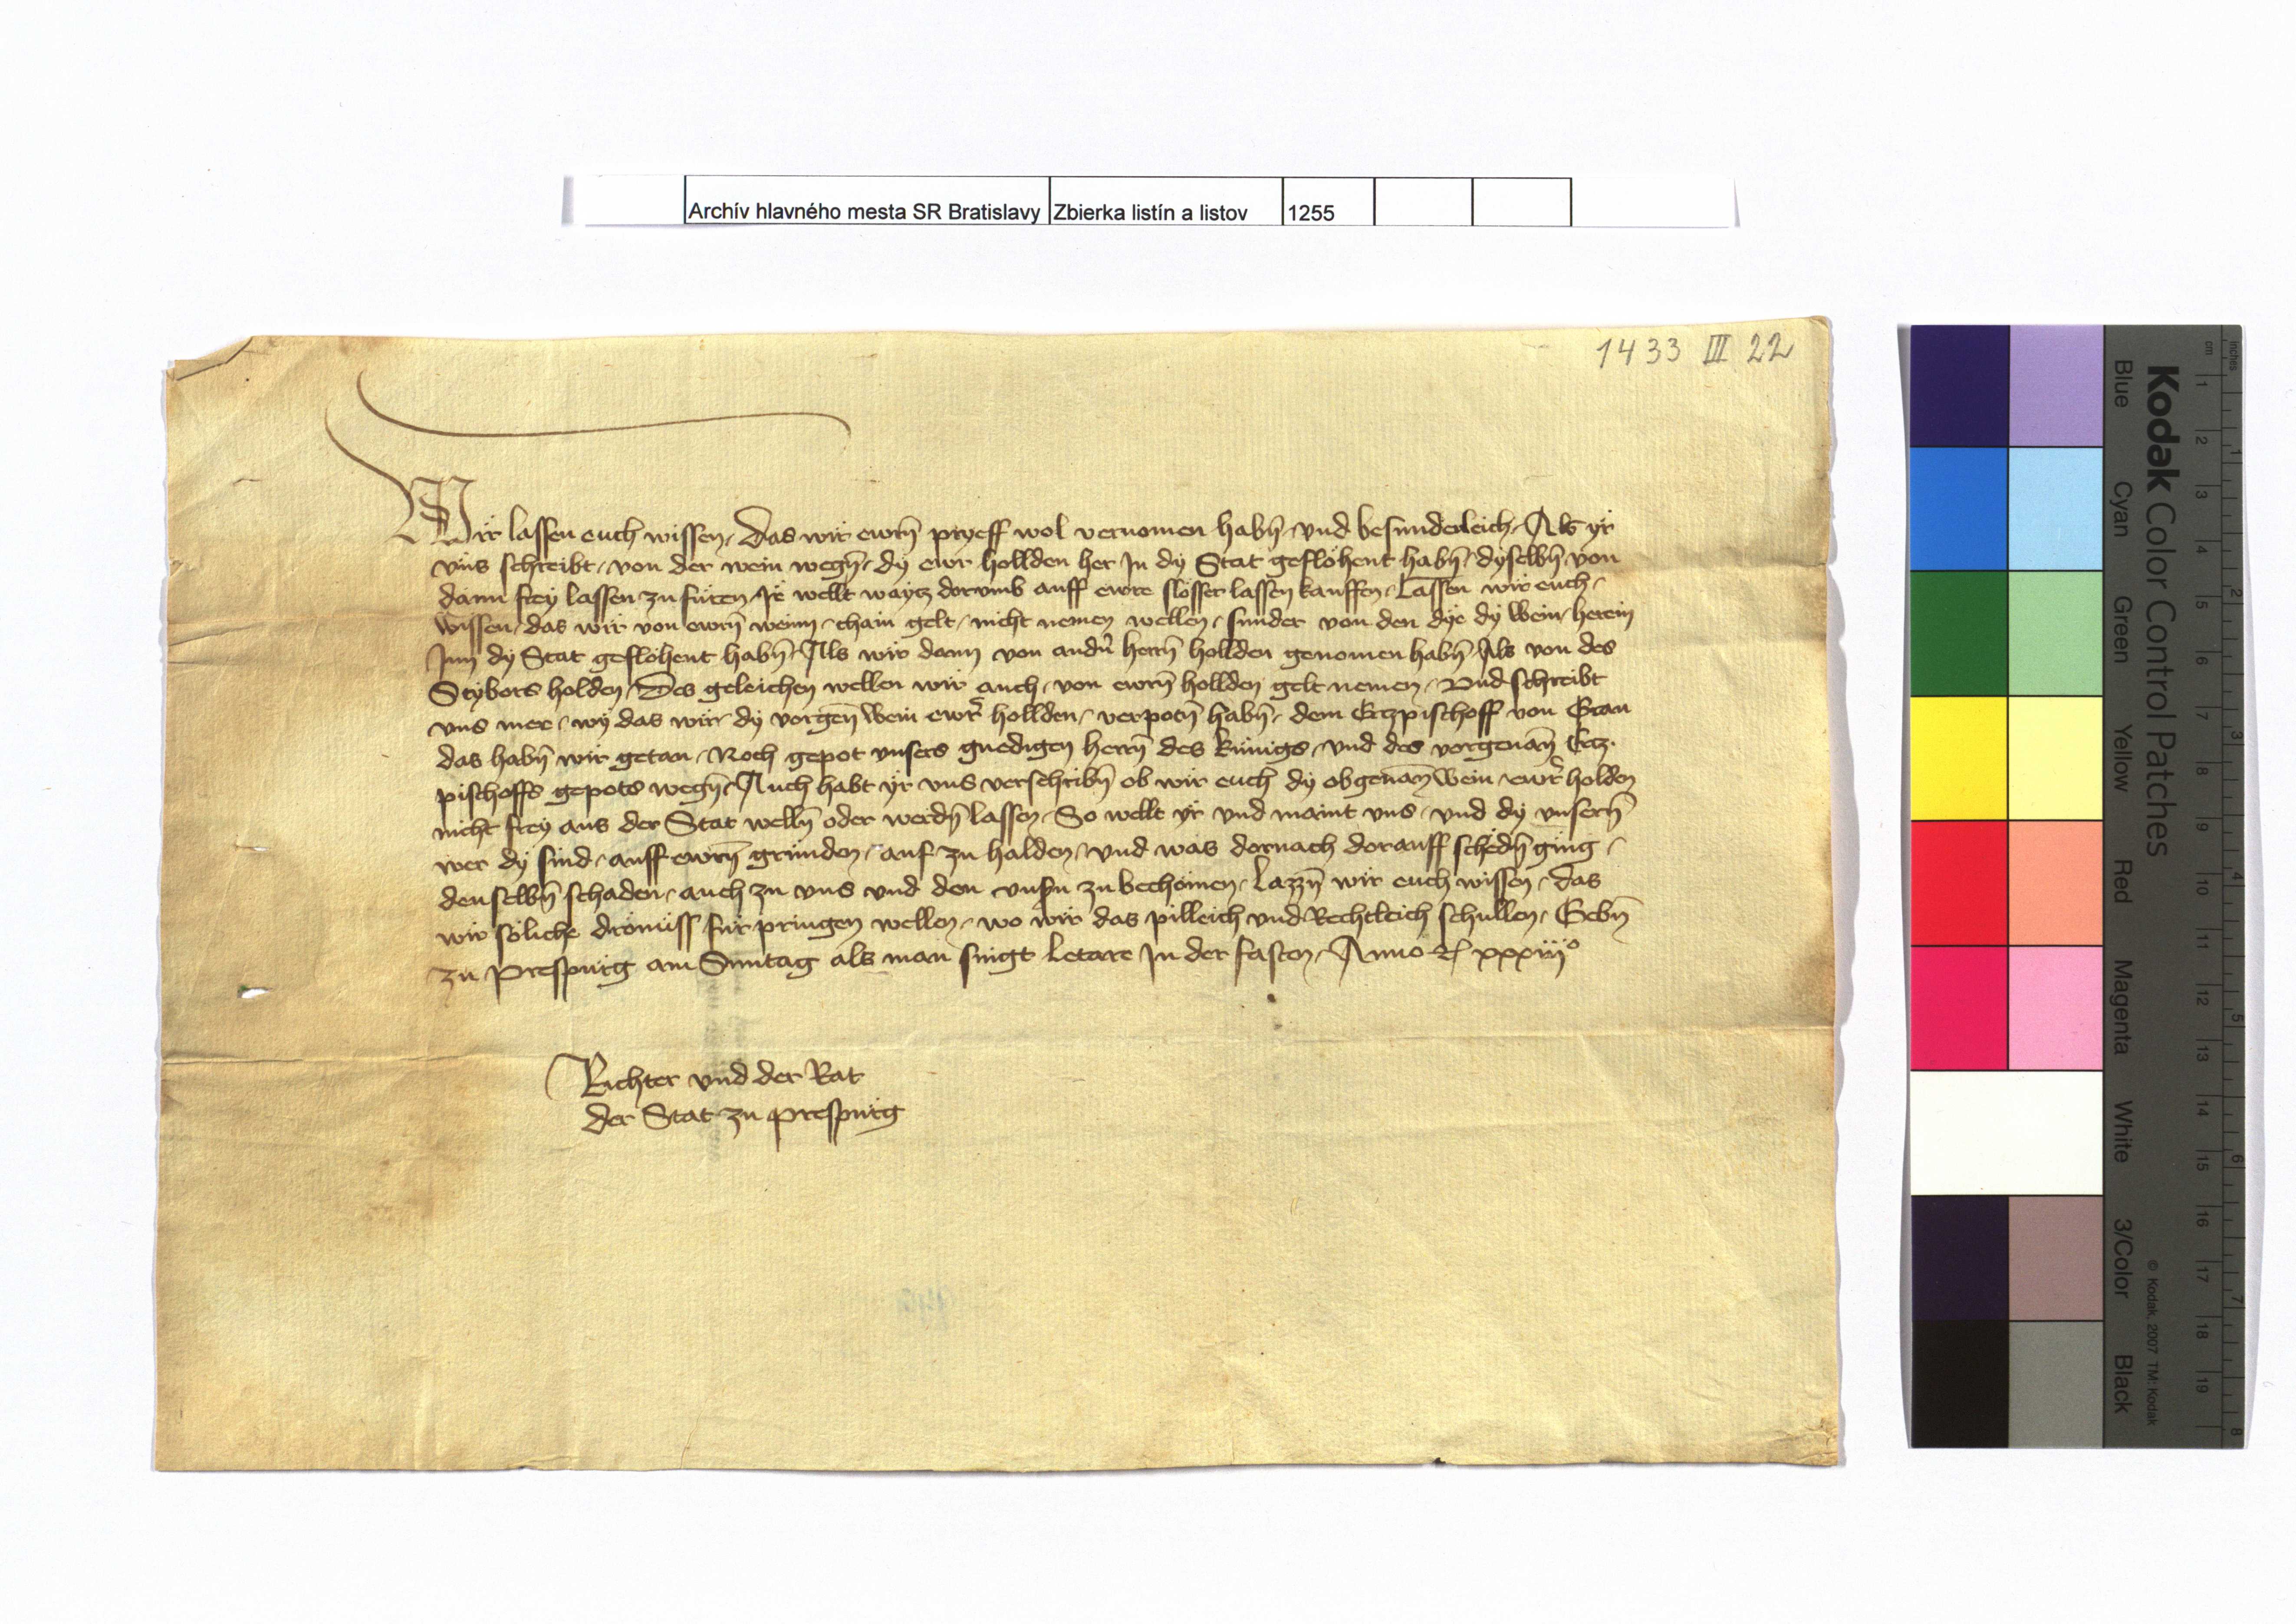 Archív hlavného mesta SR Bratislavy Zbierka listín a listov 1255
1433 III 22
Wir lassen euch wissen, Das wir ewrn̄ pryeff wol vernomen habn̄, vnd besunderleich, Als yr
vns schreibt, von der wein wegn̄, dy ewr hollden her In dy Stat geflöhent habn̄, dyselbn̄, von
dann frey lassen zu füren, Ir wellt waytz dorumb auff ewre slösser lassen kauffen, Lassen wir euch,
wissen, das wir von ewrn̄ weinn, chain gelt, nicht nemen wellen, sunder von den dye dy Wein, herein
Inn dy Stat geflöhent habn̄, Als wir dann von andn̄ herrn̄ hollden genomen habn̄, Als von des
Stybors holden, Des geleichen wellen wir auch, von ewrn̄ hollden gelt nemen, Vnd schreibt
vns mer, wy das wir, dy vorgen̄ Wein ewr̄ hollden, verpotn̄ habn̄, dem Ertzpischoff von Gran
das habn̄ wir getan, Noch gepot vnsers gnedigen herrn̄ des künigs, vnd des vorgenan̄ Ertz-
pischoffs gepots wegn̄, Auch habt yr vns verschribn̄ ob wir euch dy obgenan̄ Wein, ewr̄ holden
nicht frey aus der Stat welln̄ oder werdn̄ lassen, So wellt yr vnd maint vns, vnd dy vnsern̄
wer dy sind, auff ewrn̄ gründen, auf zu halden, vnd was dornach dorauff schedn̄ ging,
denselbn̄ schaden, auch zu vns vnd den vnsn̄ zu bechömen, lazzn̄ wir euch wissen, das
wir söliche drömüss fürpringen wellen, wo wir das pilleich vnd Rechtleich schullen, Gebn̄
zu Prespurg am Suntag als man singt Letare In der fasten, Anno etc xxxiijo
Richter vnd der Rat
der Stat zu Prespurg
Kodak Color Control Patches
Blue Cyan Green Yellow Red Magenta White 3/Color Black
© Kodak, 2007 TM: Kodak
inches 1 2 3 4 5 6 7 8
cm 1 2 3 4 5 6 7 8 9 10 11 12 13 14 15 16 17 18 19